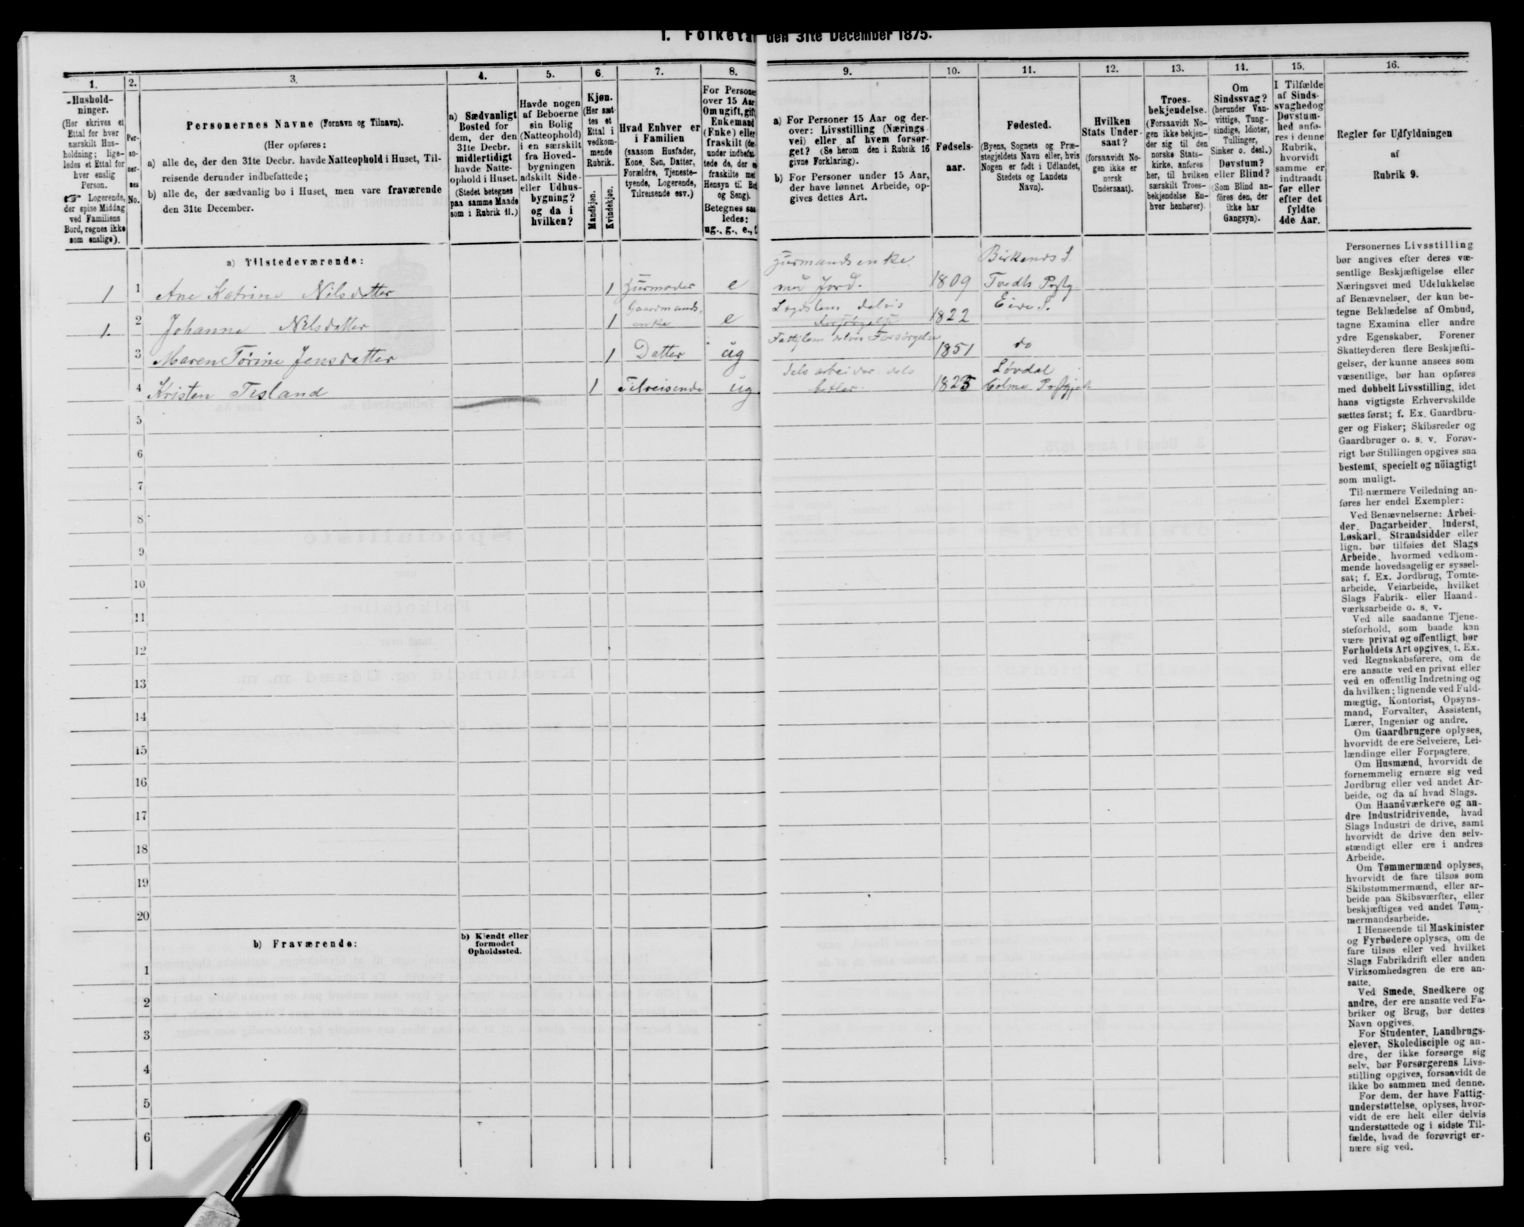 I. Folketæ den 31te December 1875.
1.
2.
3.
4.
5.
6.
7.
8.
9.
10.
11.
12.
13.
14.
15.
16.
Hushold-
ninger.
(Her skrives et
Ettal for hver
særskilt Hus-
holdning; lige-
ledes et Ettal for
hver enslig
Person.
Logerende,
der spise Middag
ved Familiens
Bord, regnes ikke
som enslige).
Per-
so-
ner-
nes
No.
Personernes Navne (Fornavn og Tilnavn).
(Her opføres:
a) alle de, der den 31te Decbr. havde Natteophold i Huset, Til-
reisende derunder indbefattede;
b) alle de, der sædvanlig bo i Huset, men vare fraværende
den 31te December.
a) Sædvanligt
Bosted for
dem, der den
31te Decbr.
midlertidigt
havde Natte-
ophold i Huset.
(Stedet betegnes
paa samme Maade
som i Rubrik 11.)
Havde nogen
af Beboerne
sin Bolig
(Natteophold)
i en særskilt
fra Hoved-
bygningen
adskilt Side-
eller Udhus-
bygning?
og da i
hvilken?
Kjøn.
(Her sæt
tes et
Ettal i
vedkom-
mende
Rubrik.
Mandkjøn.
Kvindekjøn.
Hvad Enhver er
i Familien
(saasom Husfader,
Kone, Søn, Datter,
Forældre, Tjeneste-
tyende, Logerende,
Tilreisende osv.)
For Persone
over 15 Aar
Om ugift, gift
Enkemand
(Enke) eller
fraskilt (de
under indbefat
tede de, der e
fraskilte med
Hensyn til Bo
og Seng).
Betegnes saa
ledes:
ug., g., e., f
a) For Personer 15 Aar og der-
over: Livsstilling (Nærings
vei) eller af hvem forsør-
get? (Se herom den i Rubrik 16
givne Forklaring).
b) For Personer under 15 Aar,
der have lønnet Arbeide, op-
gives dettes Art.
Fødsels-
aar.
Fødested.
(Byens, Sognets og Præ-
stegjeldets Navn eller, hvis
Nogen er født i Udlandet,
Stedets og Landets
Navn).
Hvilken
Stats Under-
saat?
(forsaavidt No-
gen ikke er
norsk
Undersaat).
Troes-
bekjendelse.
(Forsaavidt No-
gen ikke bekjen-
der sig til den
norske Stats-
kirke, anføres
her, til hvilken
særskilt Troes-
bekjendelse En-
hver henhører).
Om
Sindssvag?
(herunder Van-
vittige, Tung-
sindige, Idioter,
Tullinger,
Sinker o. desl.)
Døvstum?
eller Blind?
(Som Blind an-
føres den, der
ikke har
Gangsyn).
I Tilfælde
af Sinds-
svaghed og
Døvstum-
hed anfø-
res i denne
Rubrik,
hvorvidt
samme er
indtraadt
før eller
efter det
fyldte
4de Aar.
Regler før Udfyldningen
af
Rubrik 9.
a) Tilstedeværende:
1 1 Ane Katrine Nilsdatter 1 Husmoder e Husmandsenke med Jord. 1809 Birkenes S. Tvedts Prstg
1. 2 Johanne Nilsdatter 1 Gaardmands enke e Lægdslem delvis forsørgelse 1822 Eire S.
3 Maren Torine Jensdatter 1 Datter ug Fattiglem delvis Forsørgelse 1851 do
4 Kristen Tisland 1 Tilreisende ug dels arbeider dels betler 1825 Løvdal Holme Prstgj
5
6
7
8
9
10
11
12
13
14
15
16
17
18
19
20
b) Fraværende:
b) Kjendt eller
formodet
Opholdssted.
1
2
3
4
5
6
Personernes Livsstilling
bør angives efter deres væ-
sentlige Beskjæftigelse eller
Næringsvei med Udelukkelse
af Benævnelser, der kun be-
tegne Beklædelse af Ombud,
tagne Examina eller andre
ydre Egenskaber. Forener
Skatteyderen flere Beskjæfti-
gelser, der kunne ansees som
væsentlige, bør han opføres
med dobbelt Livsstilling, idet
hans vigtigste Erhvervskilde
sættes først; f. Ex. Gaardbru-
ger og Fisker; Skibsreder og
Gaardbruger o. s. v. Forøv-
rigt bør Stillingen opgives saa
bestemt, specielt og nöiagtigt
som muligt.
Til nærmere Veiledning an-
føres her endel Exempler:
Ved Benævnelserne: Arbei-
der, Dagarbeider, Inderst,
Løskarl, Strandsidder eller
lign. bør tilføies det Slags
Arbeide, hvormed vedkom-
mende hovedsagelig er syssel-
sat; f. Ex. Jordbrug, Tomte-
arbeide, Veiarbeide, hvilket
Slags Fabrik- eller Haand-
værksarbeide o. s. v.
Ved alle saadanne Tjene-
steforhold, som baade kan
være privat og offentligt, bør
Forholdets Art opgives, f. Ex.
ved Regnskabsførere, om de
ere ansatte ved en privat eller
ved en offentlig Indretning og
da hvilken; lignende ved Fuld-
mægtig, Kontorist, Opsyns-
mand, Forvalter, Assistent,
Lærer, Ingeniør og andre.
Om Gaardbrugere oplyses,
hvorvidt de ere Selveiere, Lei-
lændinge eller Forpagtere.
Om Husmænd, hvorvidt de
fornemmelig ernære sig ved
Jordbrug eller ved andet Ar-
beide, og da af hvad Slags.
Om Haandværkere og an-
dre Industridrivende, hvad
Slags Industri de drive, samt
hvorvidt de drive den selv-
stændigt eller ere i andres
Arbeide.
Om Tømmermænd oplyses,
hvorvidt de fare tilsøs som
Skibstømmermænd, eller ar-
beide paa Skibsværfter, eller
beskjæftiges ved andet Tøm-
mermandsarbeide.
I Henseende til Maskinister
og Fyrbødere oplyses, om de
fare tilsøs eller ved hvilket
Slags Fabrikdrift eller anden
Virksomhedsgren de ere an-
satte.
Ved Smede, Snedkere og
andre, der ere ansatte ved Fa-
briker og Brug, bør dettes
Navn opgives.
For Studenter, Landbrugs-
elever, Skoledisciple og an-
dre, der ikke forsørge sig
selv, bør Forsørgerens Livs-
stilling opgives, forsaavidt de
ikke bo sammen med denne.
For dem, der have Fattig-
understøttelse, oplyses, hvor-
vidt de ere helt eller delvis
understøttede og i sidste Til-
fælde, hvad de forøvrigt er-
nære sig ved.